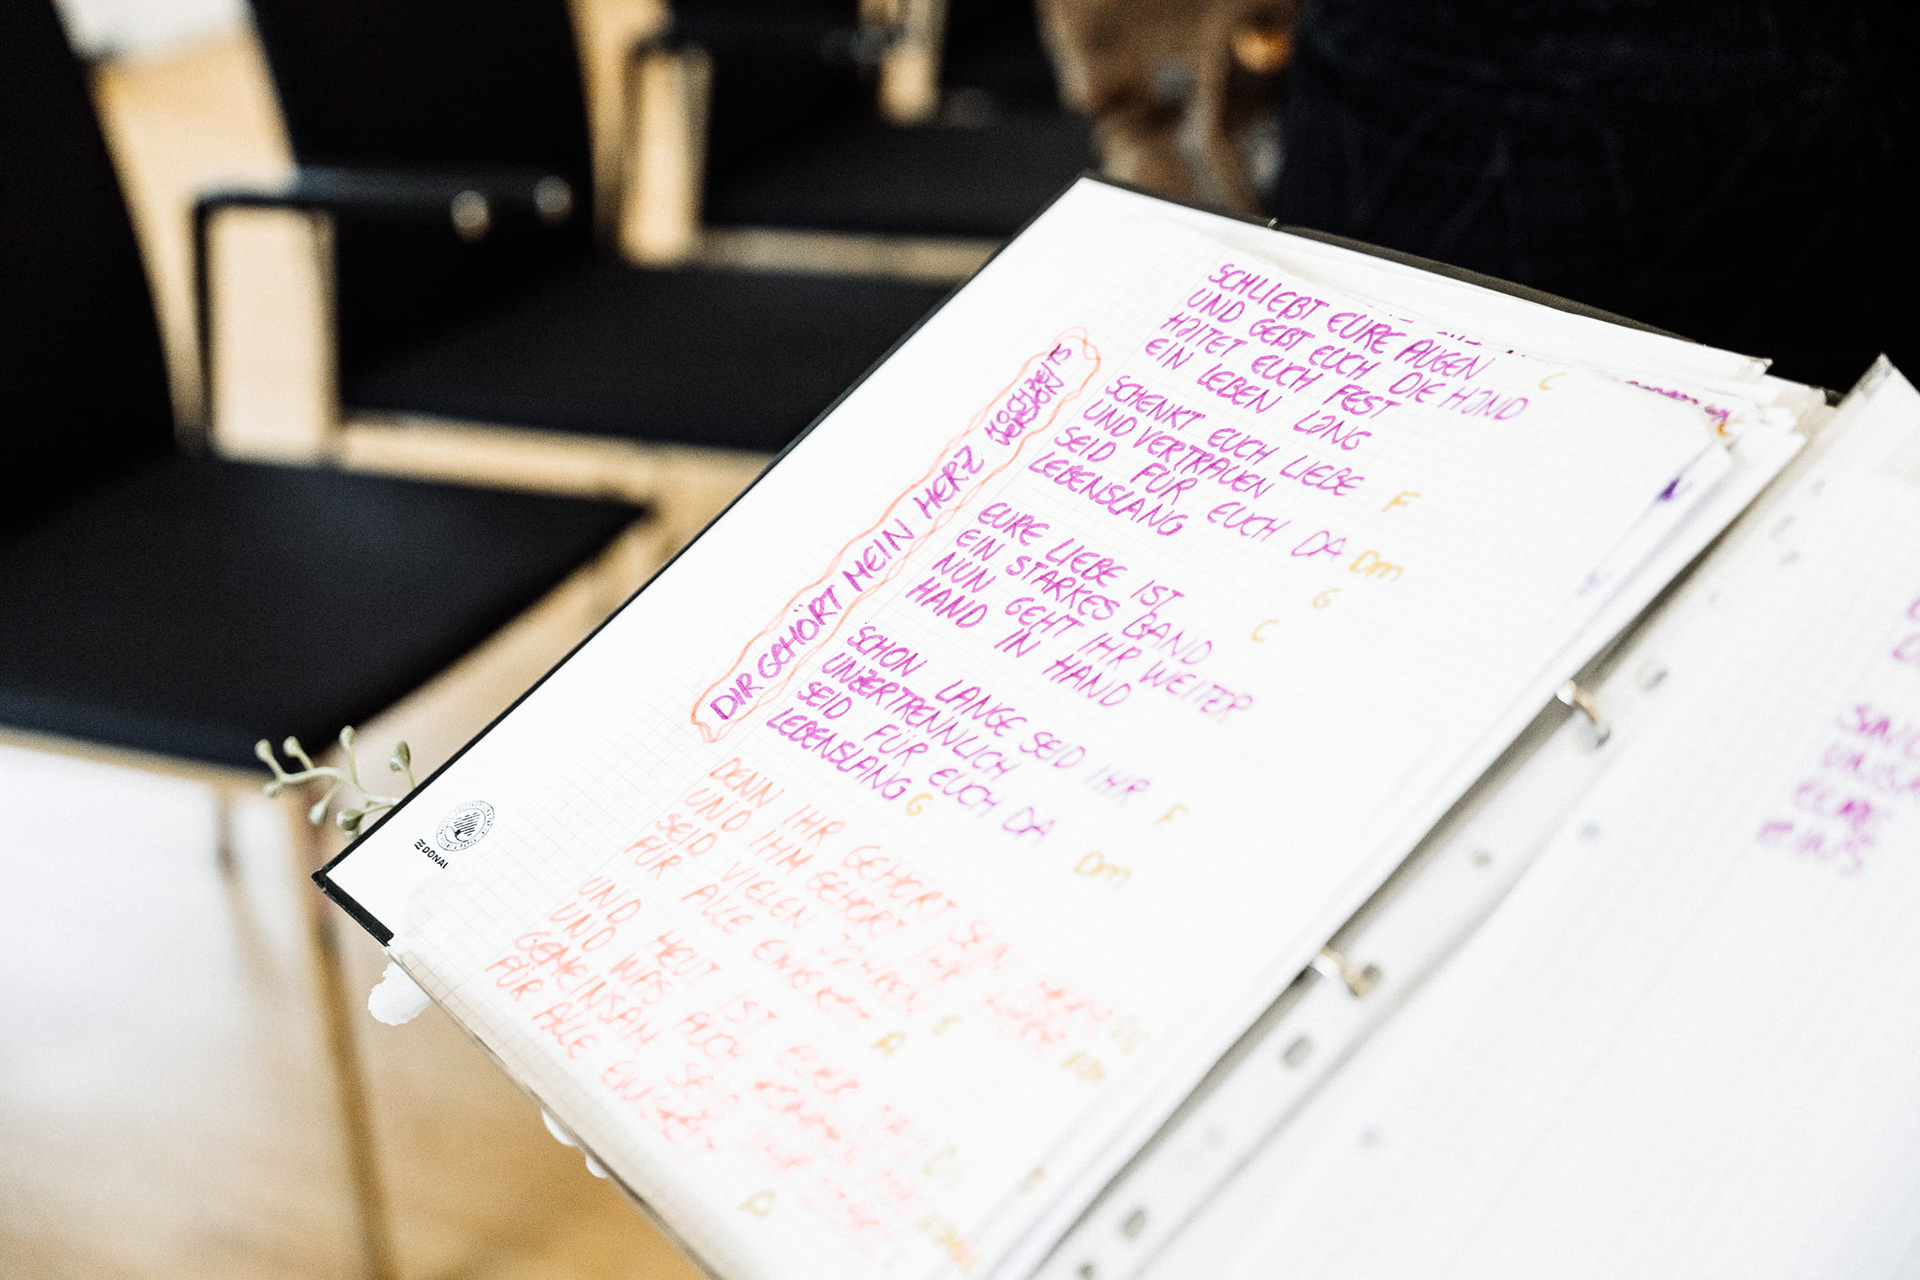 DIR GEHÖRT MEIN HERZ HOCHZEITS VERSION
SCHLIEßT EURE AUGEN C
UND GEBT EUCH DIE HAND
HALTET EUCH FEST
EIN LEBEN LANG
SCHENKT EUCH LIEBE F
UND VERTRAUEN
SEID FÜR EUCH DA Dm
LEBENSLANG G
EURE LIEBE IST C
EIN STARKES BAND
NUN GEHT IHR WEITER
HAND IN HAND
SCHON LANGE SEID IHR F
UNZERTRENNLICH
SEID FÜR EUCH DA Dm
LEBENSLANG G
DENN IHR GEHÖRT SEIN
UND IHM GEHÖRT IHR
SEID VIELEN JAHREN
FÜR ALLE EWIGKEIT A
UND HEUT IST EUER TAG
UND WAS AUCH KOMMEN MAG
GEMEINSAM SEID IHR
FÜR ALLE EWIGKEIT D
DONAU
EURE
EINS